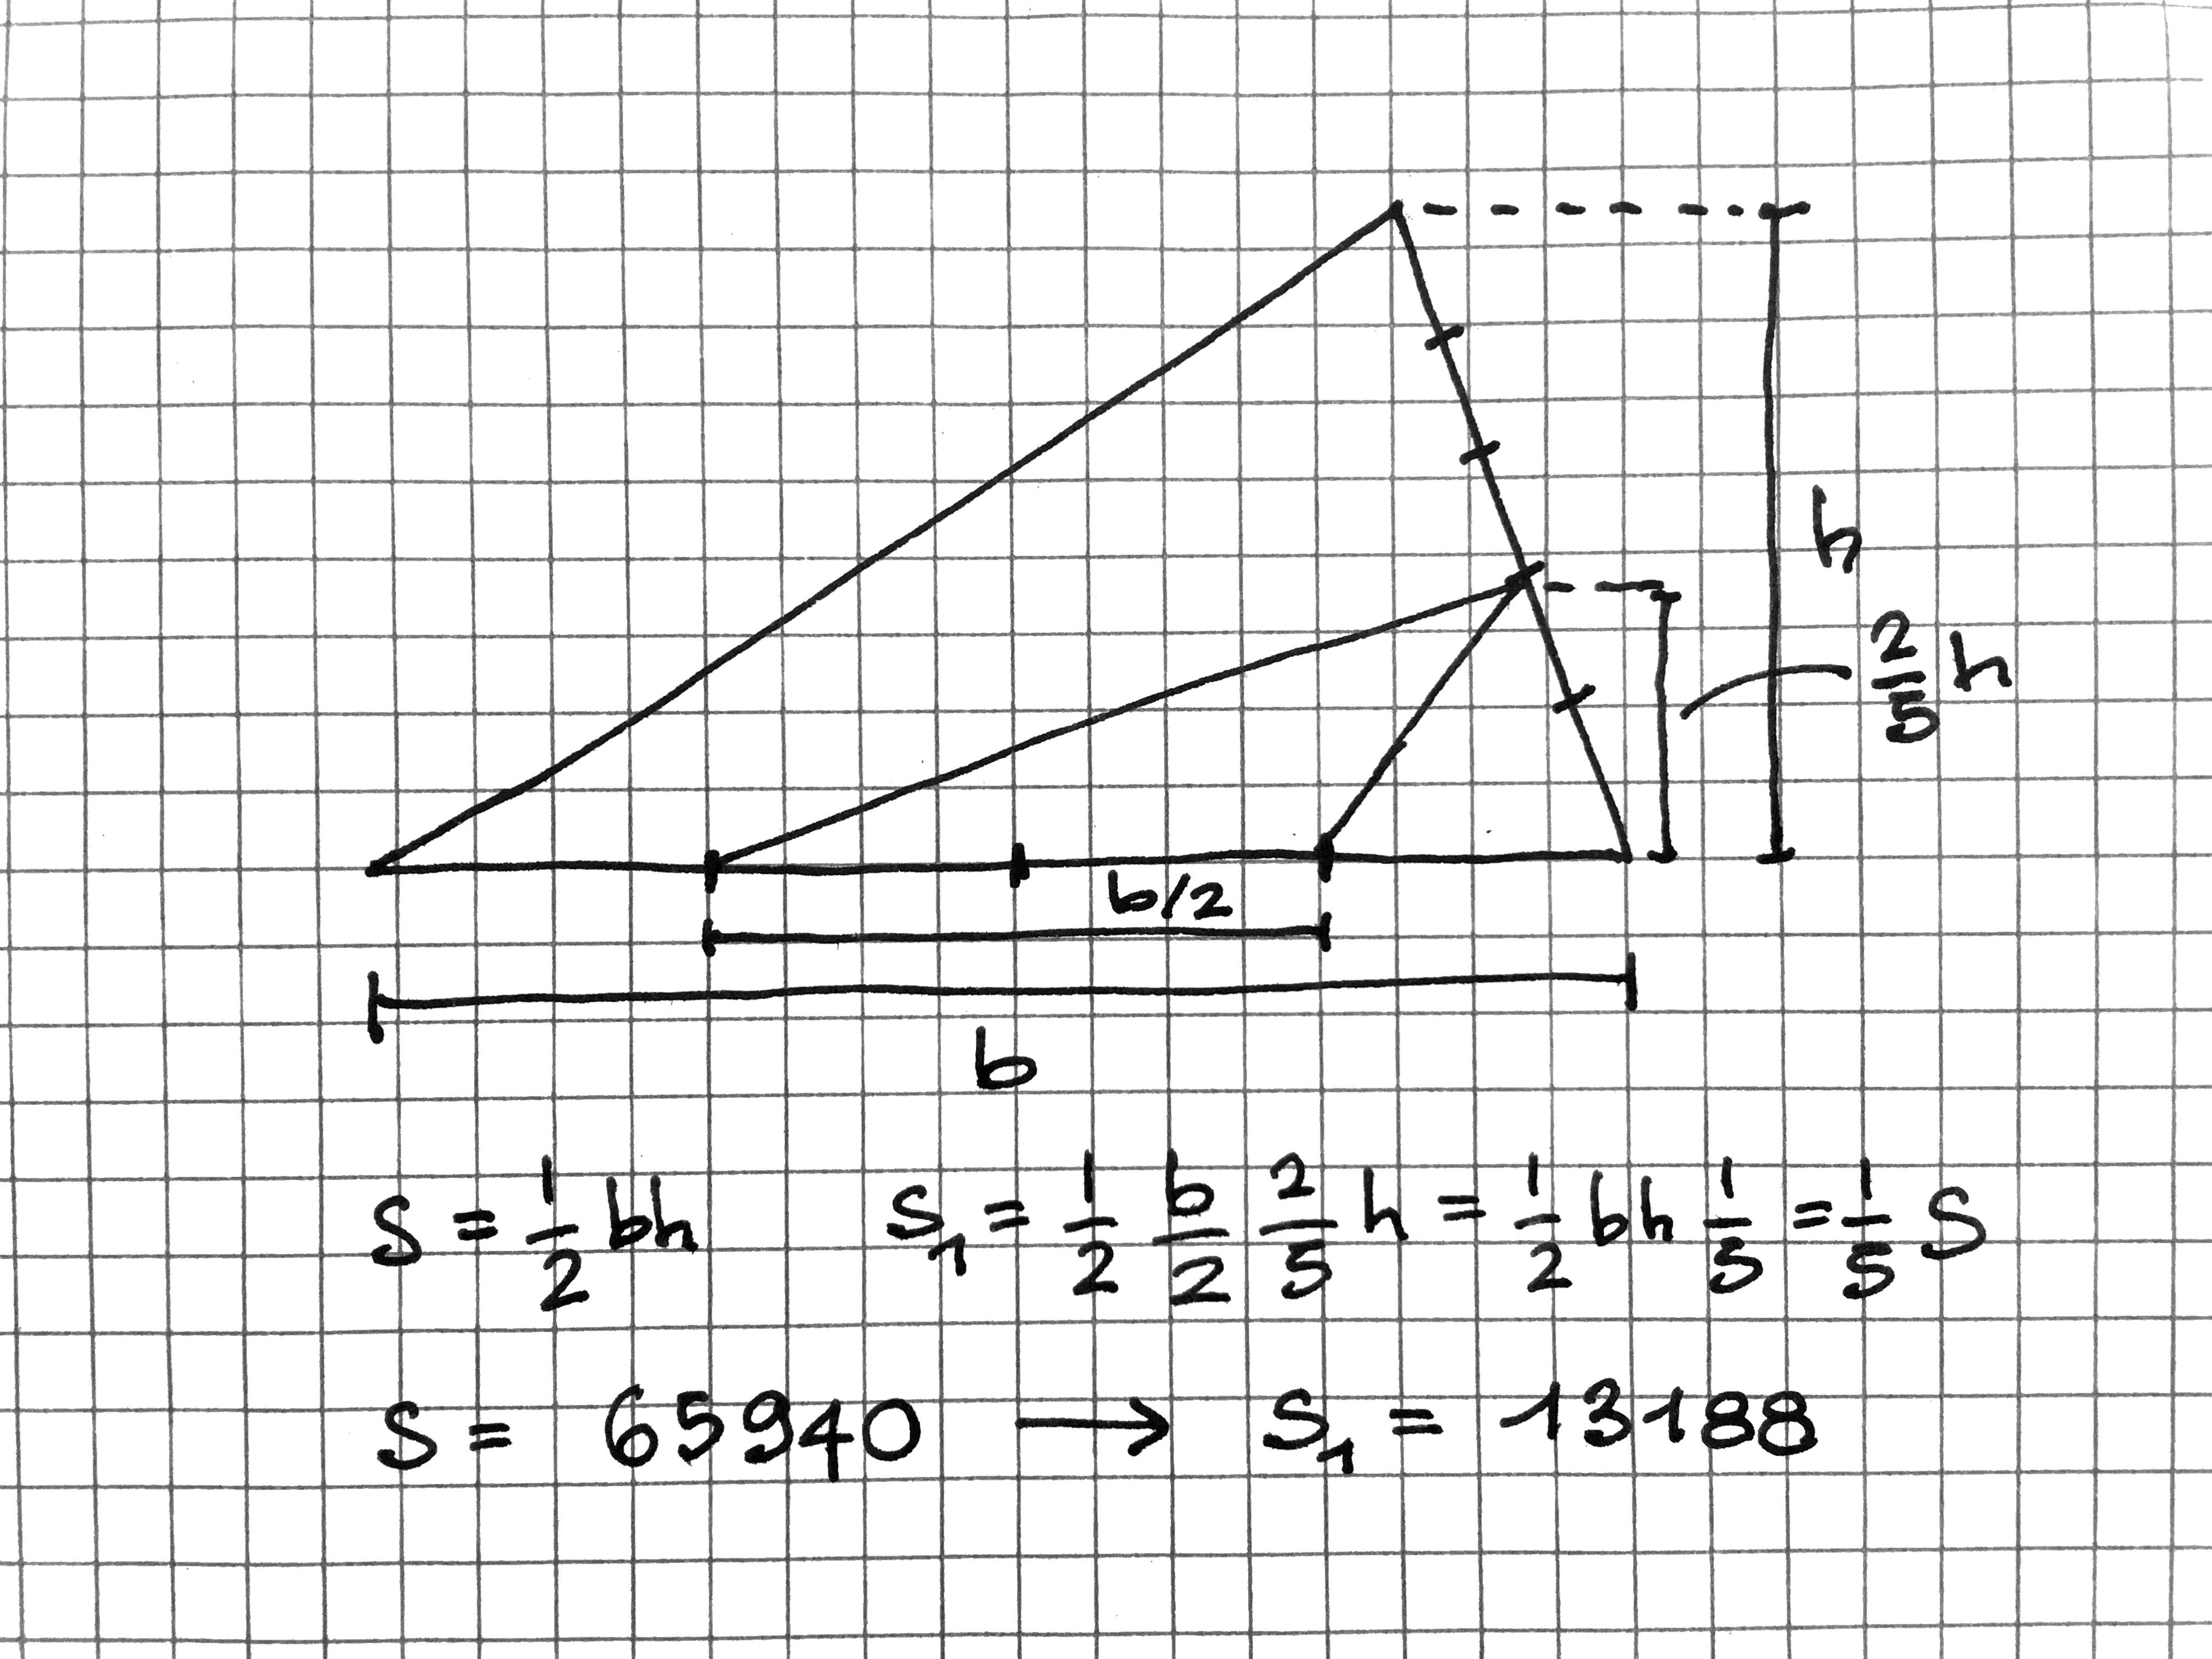 h
2/5 h
b/2
b
S = 1/2 bh S₁ = 1/2 b/2 2/5 h = 1/2 bh 1/5 = 1/5 S
S = 65940 → S₁ = 13188